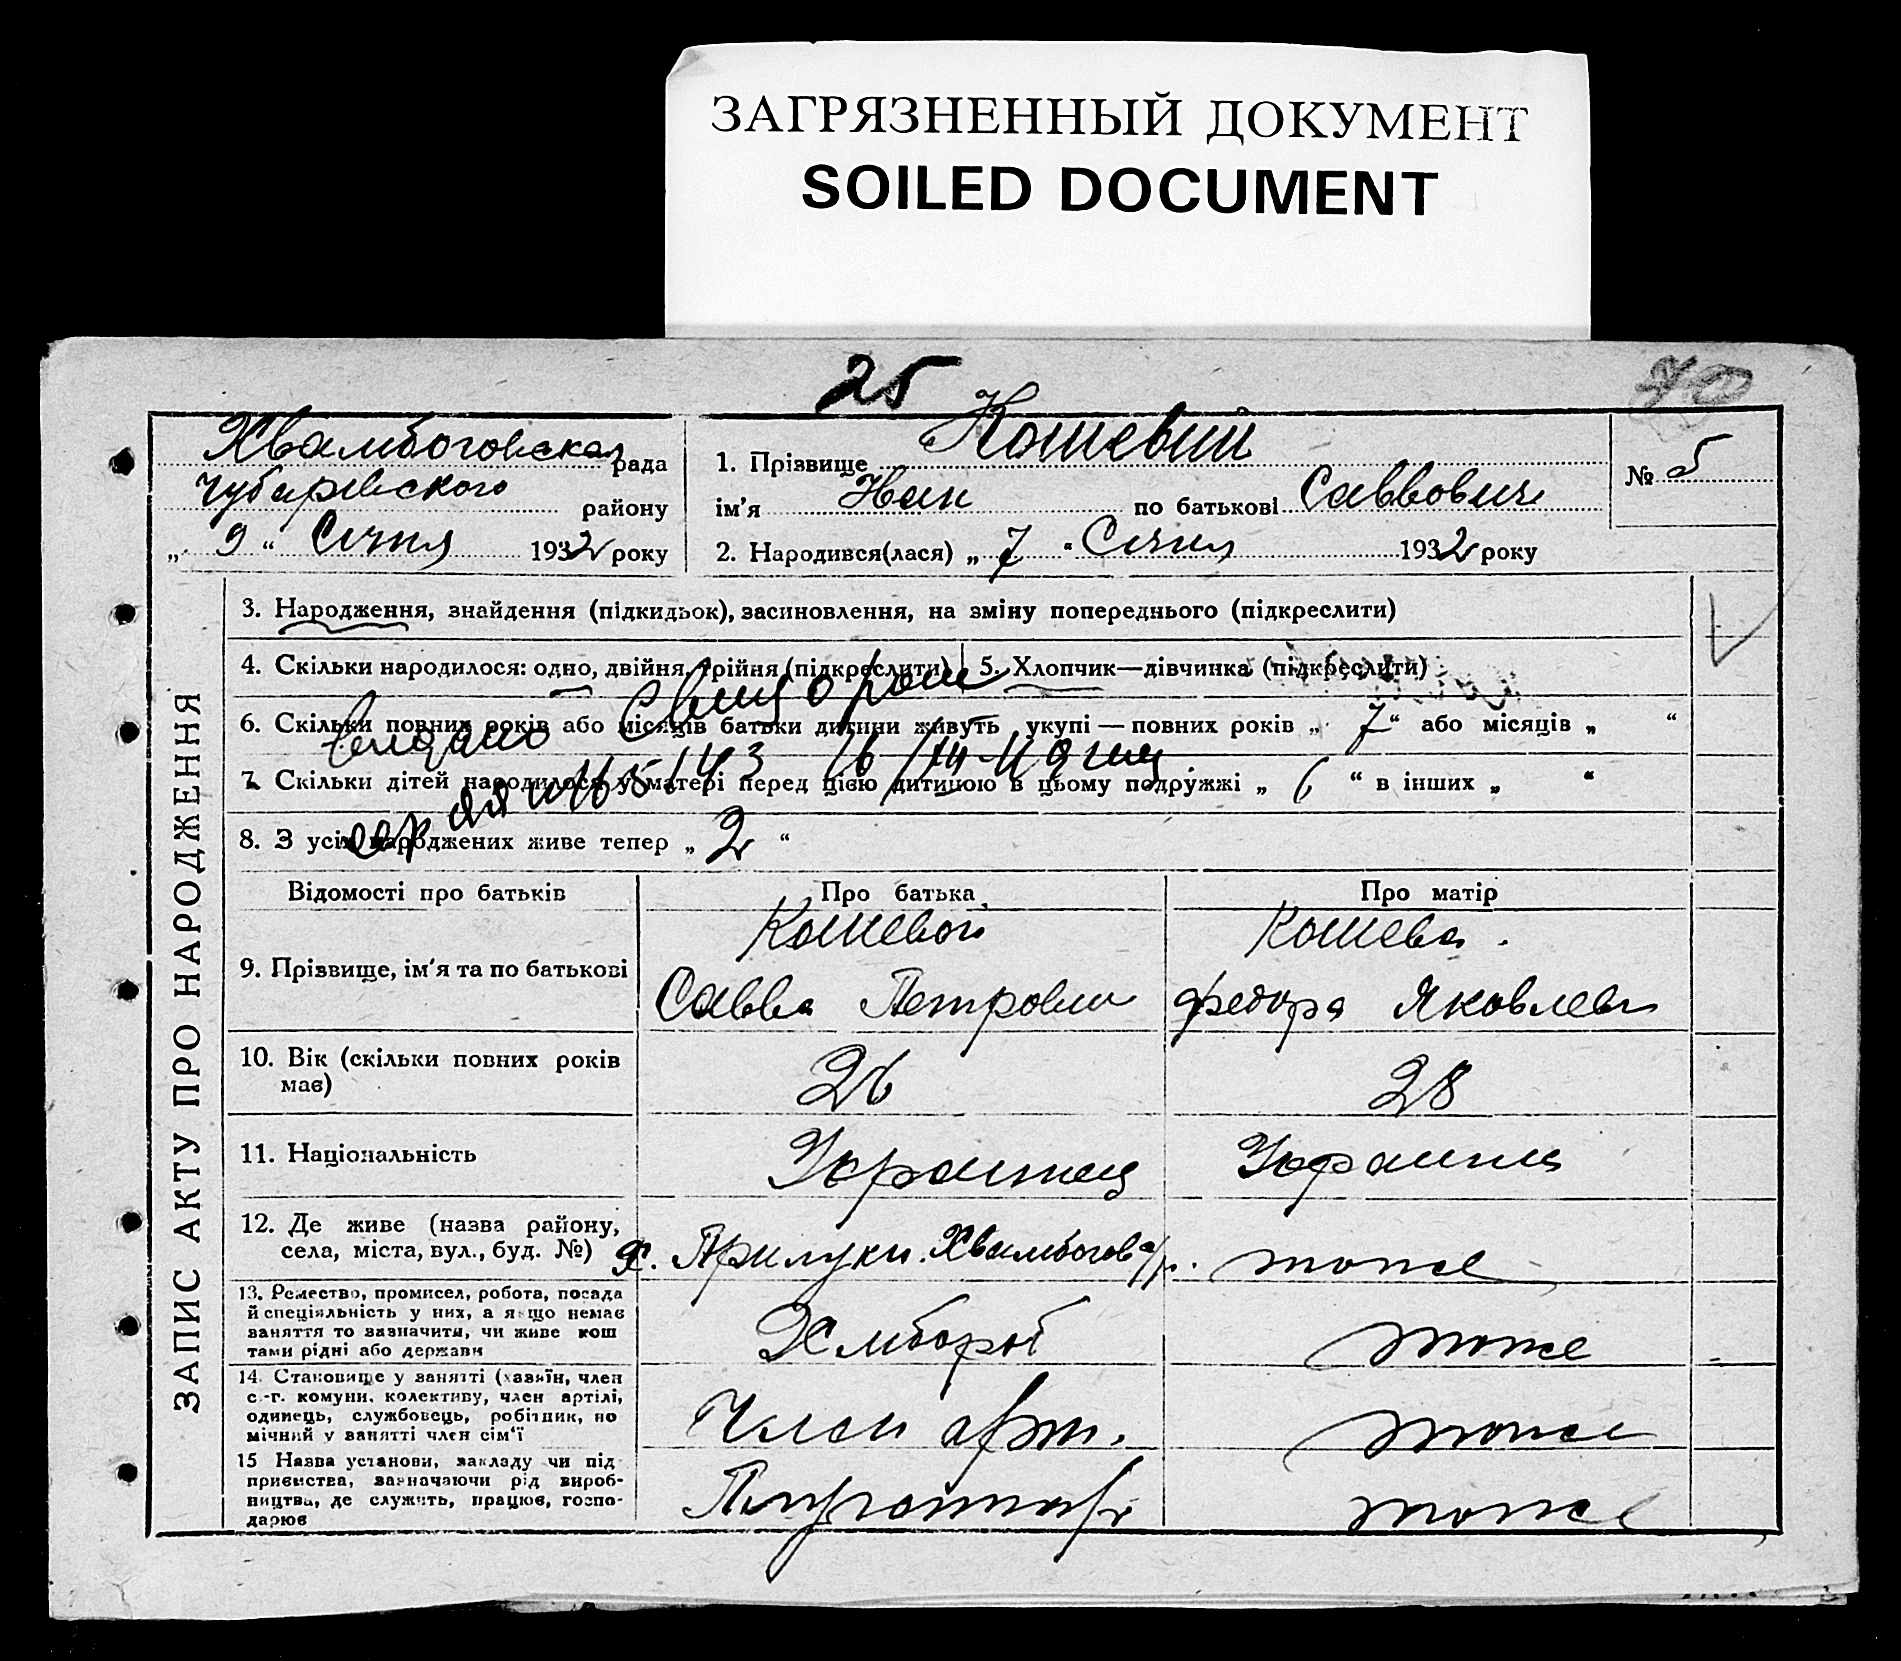 ЗАГРЯЗНЕННЫЙ ДОКУМЕНТ
SOILED DOCUMENT
25
ЗАПИС АКТУ ПРО НАРОДЖЕННЯ
рада
Чубаревского району
„ 9 “ Січня 1932 року
1. Прізвище Кошевий
ім'я Иван по батькові Саввович
2. Народився(лася) „ 7 “ Січня 1932 року
№ 5
3. Народження, знайдення (підкидьок), засиновлення, на зміну попереднього (підкреслити)
4. Скільки народилося: одно, двійня, трійня (підкреслити)
5. Хлопчик—дівчинка (підкреслити)
6. Скільки повних років або місяців батьки дитини живуть укупі — повних років „ 7 “ або місяців „ “
7. Скільки дітей народилося у матері перед цією дитиною в цьому подружжі „ 6 “ в інших „ “
8. З усіх народжених живе тепер „ 2 “
Відомості про батьків
Про батька
Про матір
9. Прізвище, ім'я та по батькові
Кошевой
Савва Петрович
Кошева.
Федора Яковлев
10. Вік (скільки повних років
має)
26
28
11. Національність
Украинец
12. Де живе (назва району,
села, міста, вул., буд. №)
х. Прилуки.
тоже
13. Ремество, промисел, робота, посада
й спеціяльність у них, а якщо немає
заняття то зазначити, чи живе кош
тами рідні або держави
Хлибороб
тоже
14. Становище у занятті (хазяїн, член
с.-г. комуни, колективу, член артілі,
одинець, службовець, робітник, по
мічний у занятті член сім'ї
Член арт.
тоже
15 Назва установи, закладу чи під
приємства, зазначаючи рід вироб-
ництва, де служить, працює, госпо-
дарює
тоже